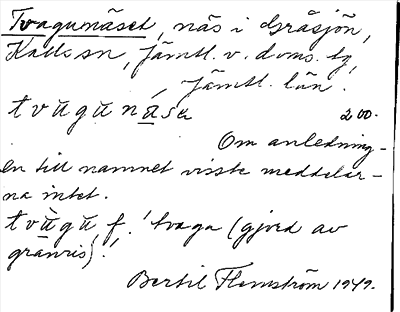 Tvagunäset, näs i Gräsjön,
Kalls sn, Jämtl. v. doms. tg,
Jämtl. län.
tvŭgŭ nása 200.
Om anledning-
en till namnet visste meddelar-
na intet.
tvùgŭ f. 'tvaga (gjord av
granris)'.
Bertil Flemström 1949.